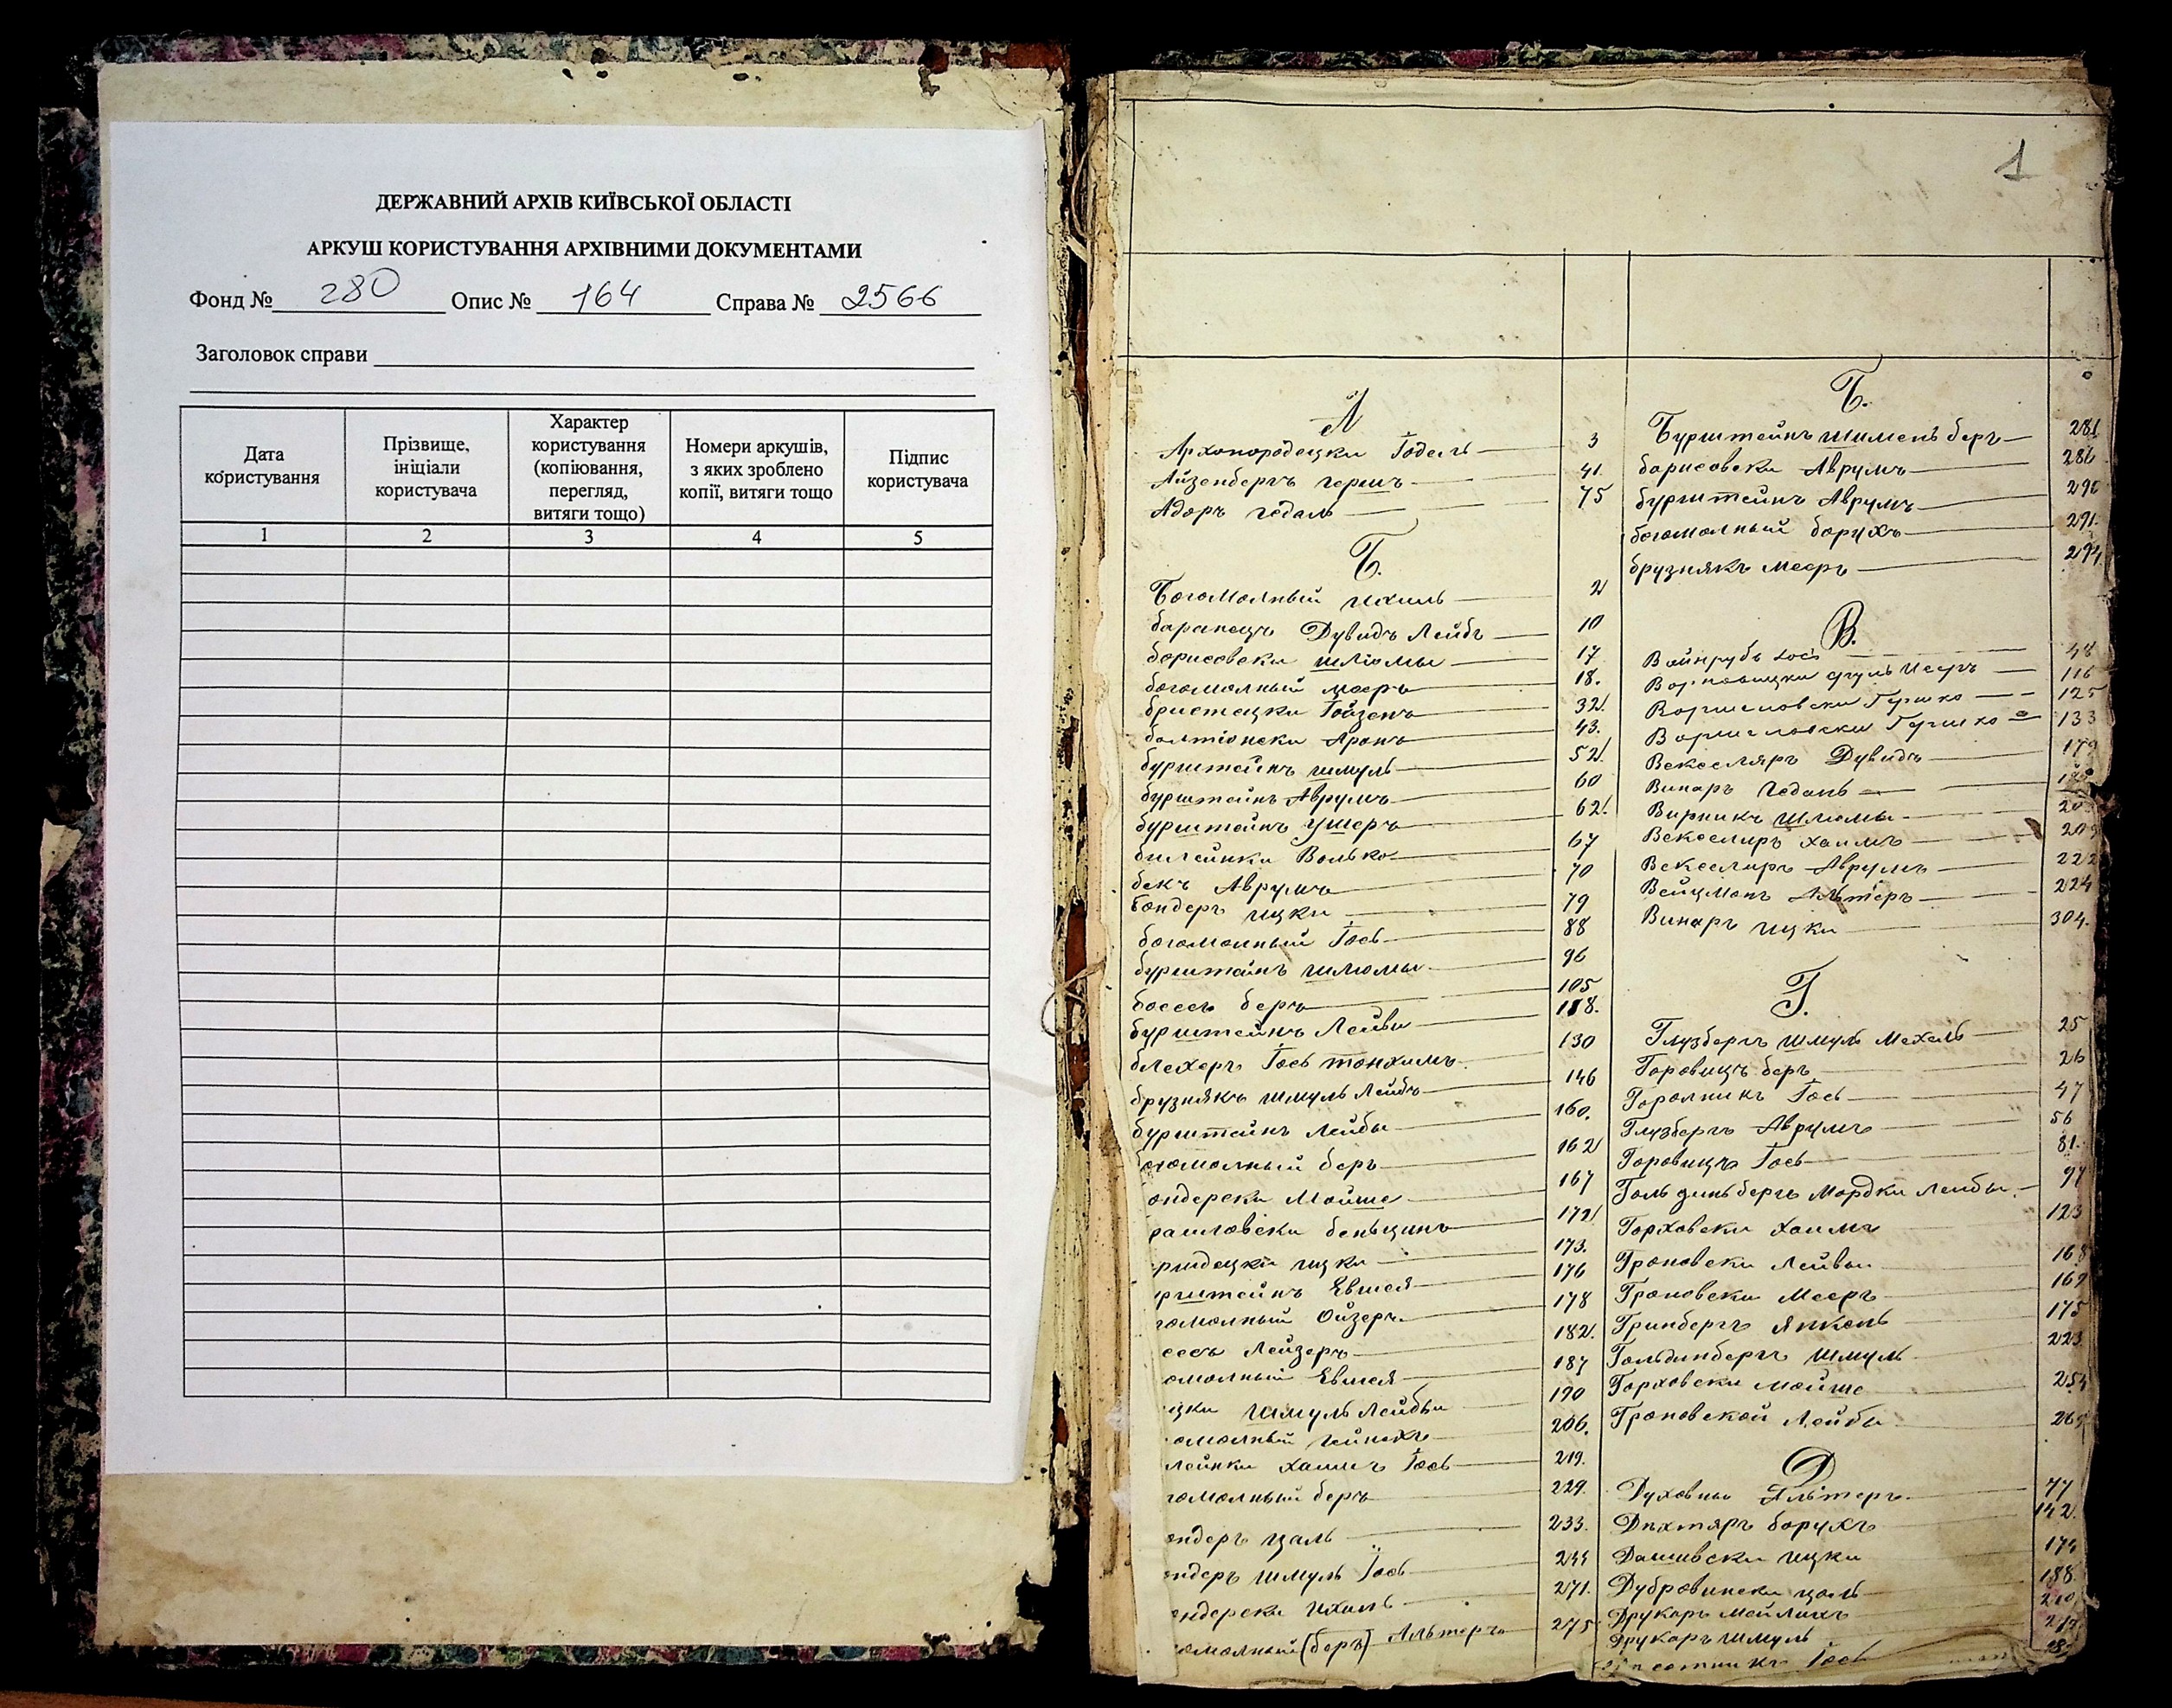 ДЕРЖАВНИЙ АРХІВ КИЇВСЬКОЇ ОБЛАСТІ
АРКУШ КОРИСТУВАННЯ АРХІВНИМИ ДОКУМЕНТАМИ
Фонд № 280 Опис № 164 Справа № 2566
Заголовок справи
Дата користування
Прізвище, ініціали користувача
Характер користування (копіювання, перегляд, витяги тощо)
Номери аркушів, з яких зроблено копії, витяги тощо
Підпис користувача
1 2 3 4 5
1
А
Архопородецки Годель 3
Айзенбергъ гершъ 41.
Адоръ гедаль 75
Б.
Богомолный ихиль 2
баранецъ Дувидъ Лейбъ 10
борисовски шлюмы 17
богомолный мееръ 18.
32.
Аронъ 43.
бурштейнъ шмуль 52.
бурштейнъ Аврумъ 60
бурштейнъ Ушеръ 62.
билейнки Волько 67
бекъ Аврумъ 70
бондеръ ицки 79
богомолный Іось 88
бурштейнъ шлюмы 96
беръ 105
бурштейнъ Лейви 118.
блехеръ Іось 130
брузнякъ шмуль Лейбъ 146
бурштейнъ лейбы 160.
богомолный беръ 162
ондерски Мойше 167
беньцинъ 172
ицки 173.
рштейнъ Евшей 176
гомолный Ойзеръ 178
Лейзеръ 182.
омолный Евшей 187
цки шмуль Лейбы 190
омолный 206.
лейнки хаимъ Іось 219.
гомолный беръ 229.
ндеръ цаль 233.
ндеръ шмуль Іось 244
ндерски ихиль 271.
омолный (беръ) Альтеръ 275
Б.
Бурштейнъ шимень беръ 281
борисовски Аврумъ 286
бурштейнъ Аврумъ 290
богомолный борухъ 291.
брузнякъ мееръ 294.
В.
Вайнрубъ Іось 48
116
Гершко 125
Гершко 133
Векселяръ Дувидъ 179
Винаръ гедаль
Вирникъ шлюмы
Векселиръ хаимъ 209
Векселиръ Аврумъ 222
Вейцманъ Альтеръ 224
Винаръ ицки 304.
Г.
Глузбергъ шмуль Мехель 25
Горовицъ беръ 26
Іось 47
Глузбергъ Аврумъ 56
Горовицъ Іось 81.
Гольдиньбергъ Мордки лейбы. 97
Горховски хаимъ 123
Грановски Лейвы 168
Грановски Мееръ 169
Гринбергъ Янкель 175
Гольдинбергъ шмуль 223
Горховски мойше 254
Грановской Лейбы
Д
Альтеръ 77
Дихтяръ борухъ 142.
Дашивски ицки 174
Дубровински цаль 188
Друкаръ Мейлихъ 210
Друкаръ шмуль
Іось